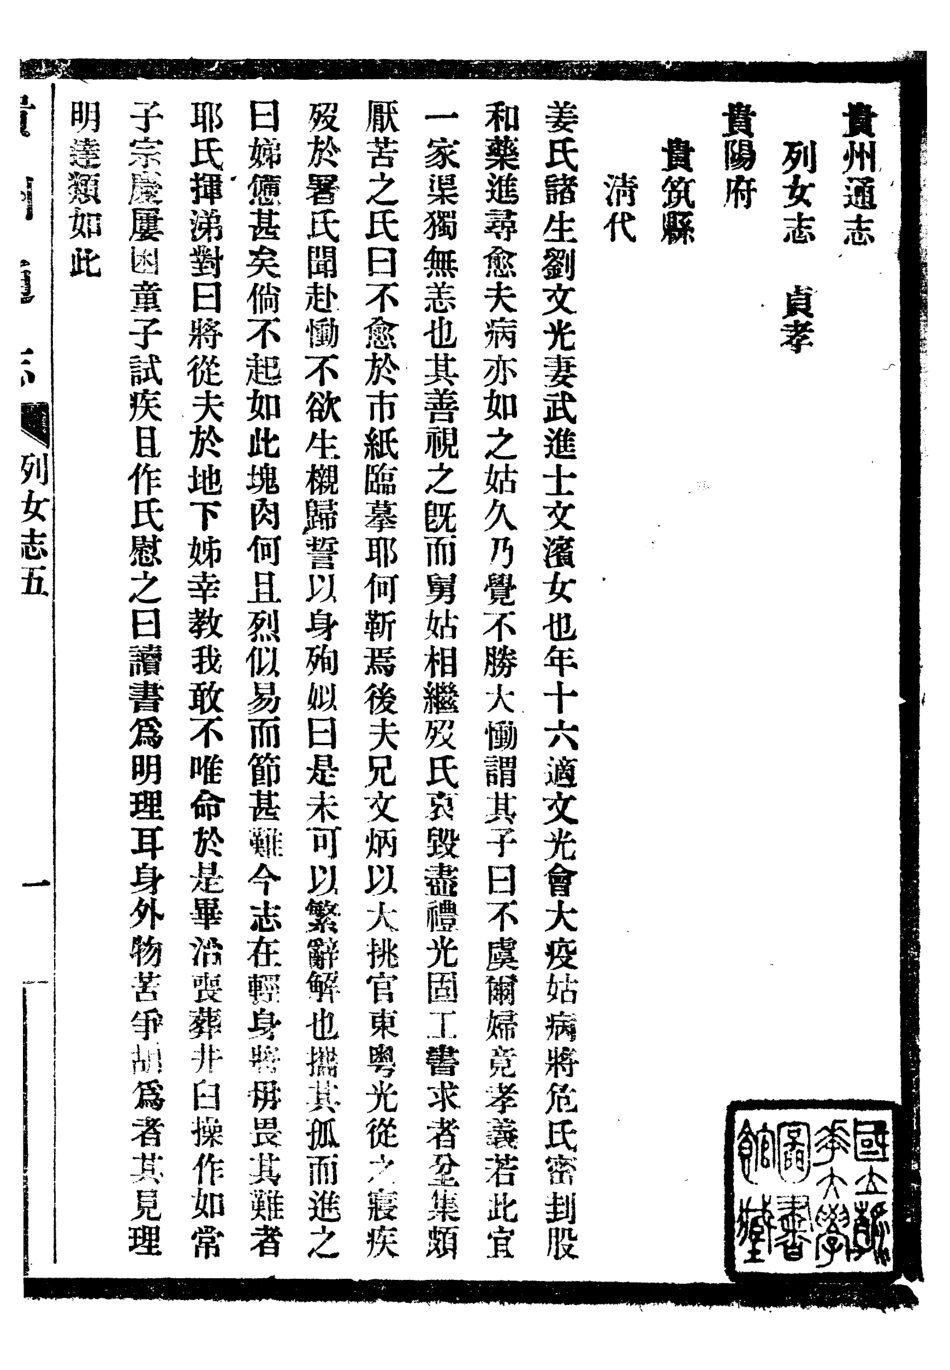 貴州通志
列女志　貞孝
貴陽府
貴筑縣
清代
姜氏諸生劉文光妻武進士文濱女也年十六適文光會大疫姑病將危氏密刲股
和藥進尋愈夫病亦如之姑久乃覺不勝大慟謂其子曰不虞爾婦竟孝義若此宜
一家渠獨無恙也其善視之既而舅姑相繼歿氏哀毀盡禮光固工書求者坌集頗
厭苦之氏曰不愈於市紙臨摹耶何靳焉後夫兄文炳以大挑官東粵光從之寢疾
歿於署氏聞赴慟不欲生櫬歸誓以身殉姒曰是未可以繁辭解也攜其孤而進之
曰娣憊甚矣倘不起如此塊肉何且烈似易而節甚難今志在輕身將毋畏其難者
耶氏揮涕對曰將從夫於地下姊幸教我敢不唯命於是畢治喪葬井臼操作如常
子宗慶屢困童子試疾且作氏慰之曰讀書爲明理耳身外物苦爭胡爲者其見理
明達類如此
貴州通志
列女志五
一
國立清華大學圖書館藏